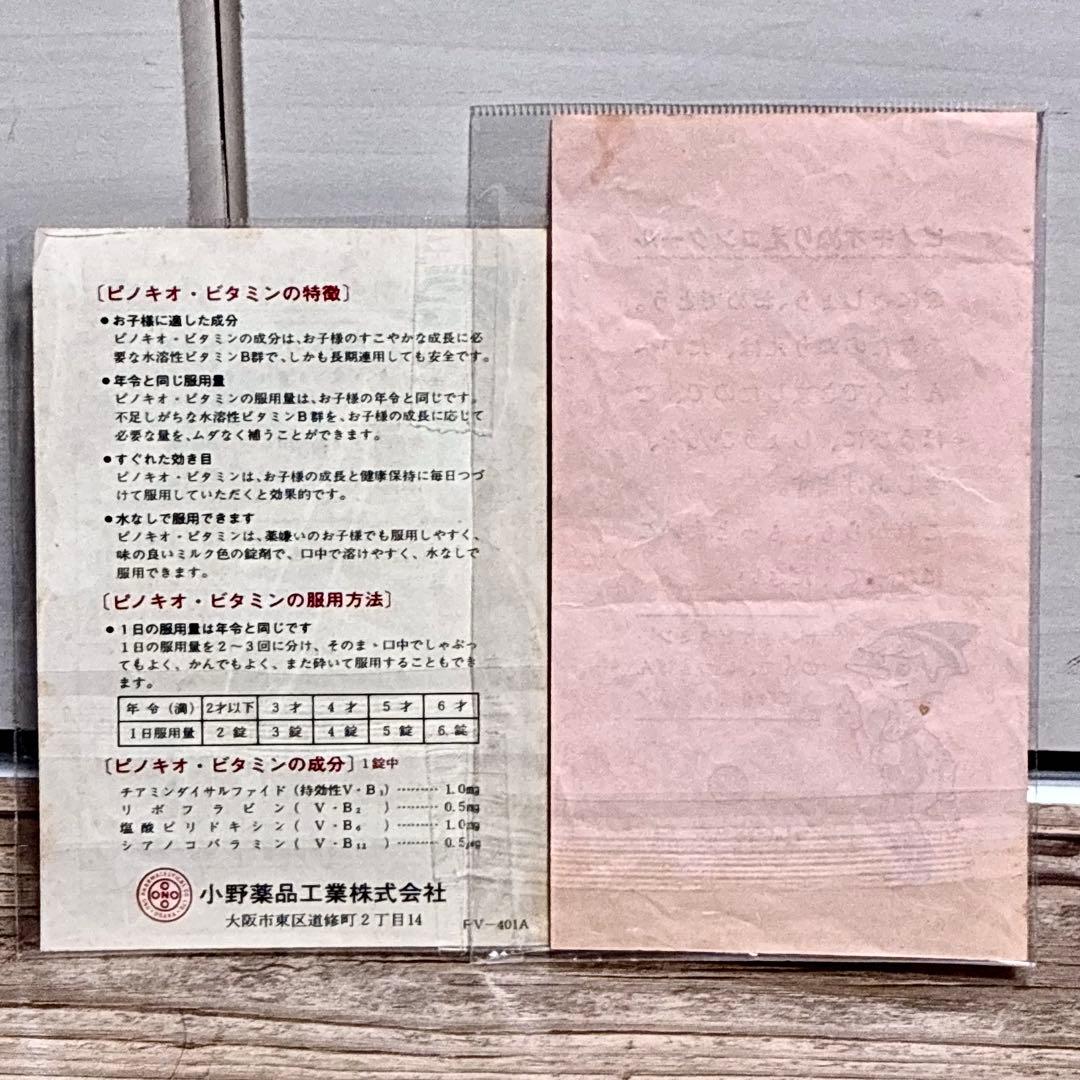 〔ピノキオ・ビタミンの特徴〕
●お子様に適した成分
ピノキオ・ビタミンの成分は、お子様のすこやかな成長に必
要な水溶性ビタミンB群で、しかも長期連用しても安全です。
●年令と同じ服用量
ピノキオ・ビタミンの服用量は、お子様の年令と同じです。
不足しがちな水溶性ビタミンB群を、お子様の成長に応じて
必要な量を、ムダなく補うことができます。
●すぐれた効き目
ピノキオ・ビタミンは、お子様の成長と健康保持に毎日つづ
けて服用していただくと効果的です。
●水なしで服用できます
ピノキオ・ビタミンは、薬嫌いのお子様でも服用しやすく、
味の良いミルク色の錠剤で、口中で溶けやすく、水なしで
服用できます。
〔ピノキオ・ビタミンの服用方法〕
●1日の服用量は年令と同じです
1日の服用量を2〜3回に分け、そのまゝ口中でしゃぶっ
てもよく、かんでもよく、また砕いて服用することもでき
ます。
年令(満) 2才以下 3才 4才 5才 6才
1日服用量 2錠 3錠 4錠 5錠 6錠
〔ピノキオ・ビタミンの成分〕1錠中
チアミンダイサルファイド(持効性V・B₁)………1.0mg
リボフラビン(V・B₂)………0.5mg
塩酸ピリドキシン(V・B₆)………1.0mg
シアノコバラミン(V・B₁₂)………0.5μg
ONO
小野薬品工業株式会社
大阪市東区道修町2丁目14
PV-401A
ピノキオぬりえコンクール